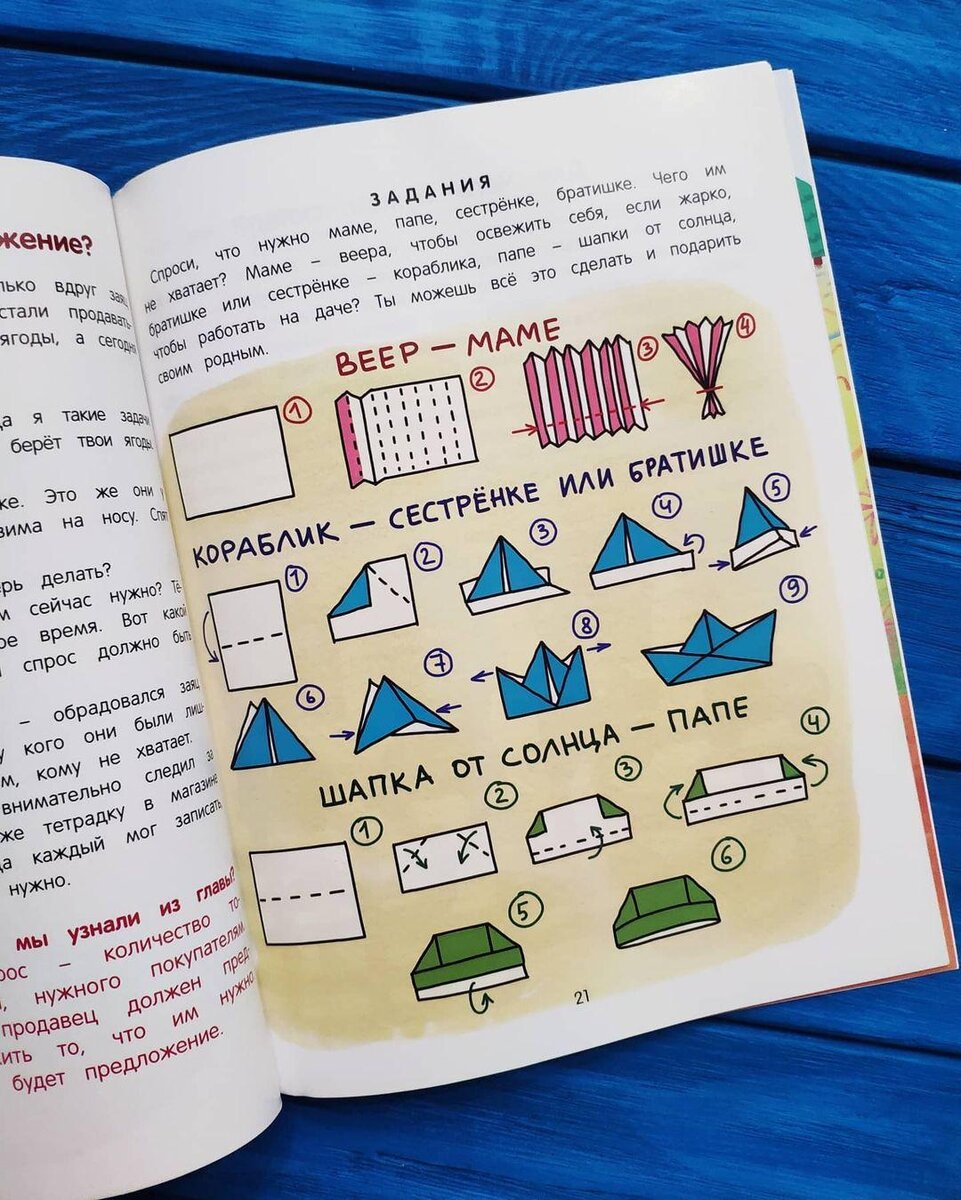 жение?
лько вдруг заяц
стали продавать
ягоды, а сегодня
да я такие задачи
берёт твои ягоды
ке. Это же они у
зима на носу.
ерь делать?
м сейчас нужно? Тё-
ое время. Вот какой
спрос должно быть
– обрадовался заяц
у кого они были лиш-
м, кому не хватает.
внимательно следил за
же тетрадку в магазине
да каждый мог записать
нужно.
мы узнали из главы?
рос – количество то-
, нужного покупателям.
продавец должен пред-
ить то, что им нужно
будет предложение.
ЗАДАНИЯ
Спроси, что нужно маме, папе, сестрёнке, братишке. Чего им
не хватает? Маме – веера, чтобы освежить себя, если жарко,
братишке или сестрёнке – кораблика, папе – шапки от солнца,
чтобы работать на даче? Ты можешь всё это сделать и подарить
своим родным.
ВЕЕР – МАМЕ
1 2 3 4
КОРАБЛИК – СЕСТРЁНКЕ ИЛИ БРАТИШКЕ
1 2 3 4 5
6 7 8 9
ШАПКА ОТ СОЛНЦА – ПАПЕ
1 2 3 4
5 6
21